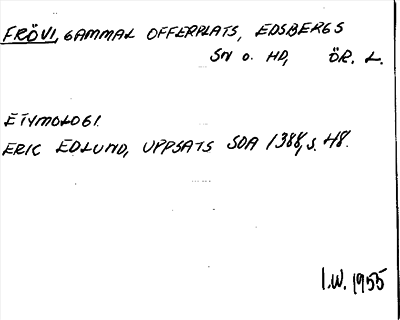 FRÖVI, GAMMAL OFFERPLATS, EDSBERGS
SN O. HD, ÖR. L.
ETYMOLOGI.
ERIC EDLUND, UPPSATS SOA 1388, S. 48.
I.W. 1955